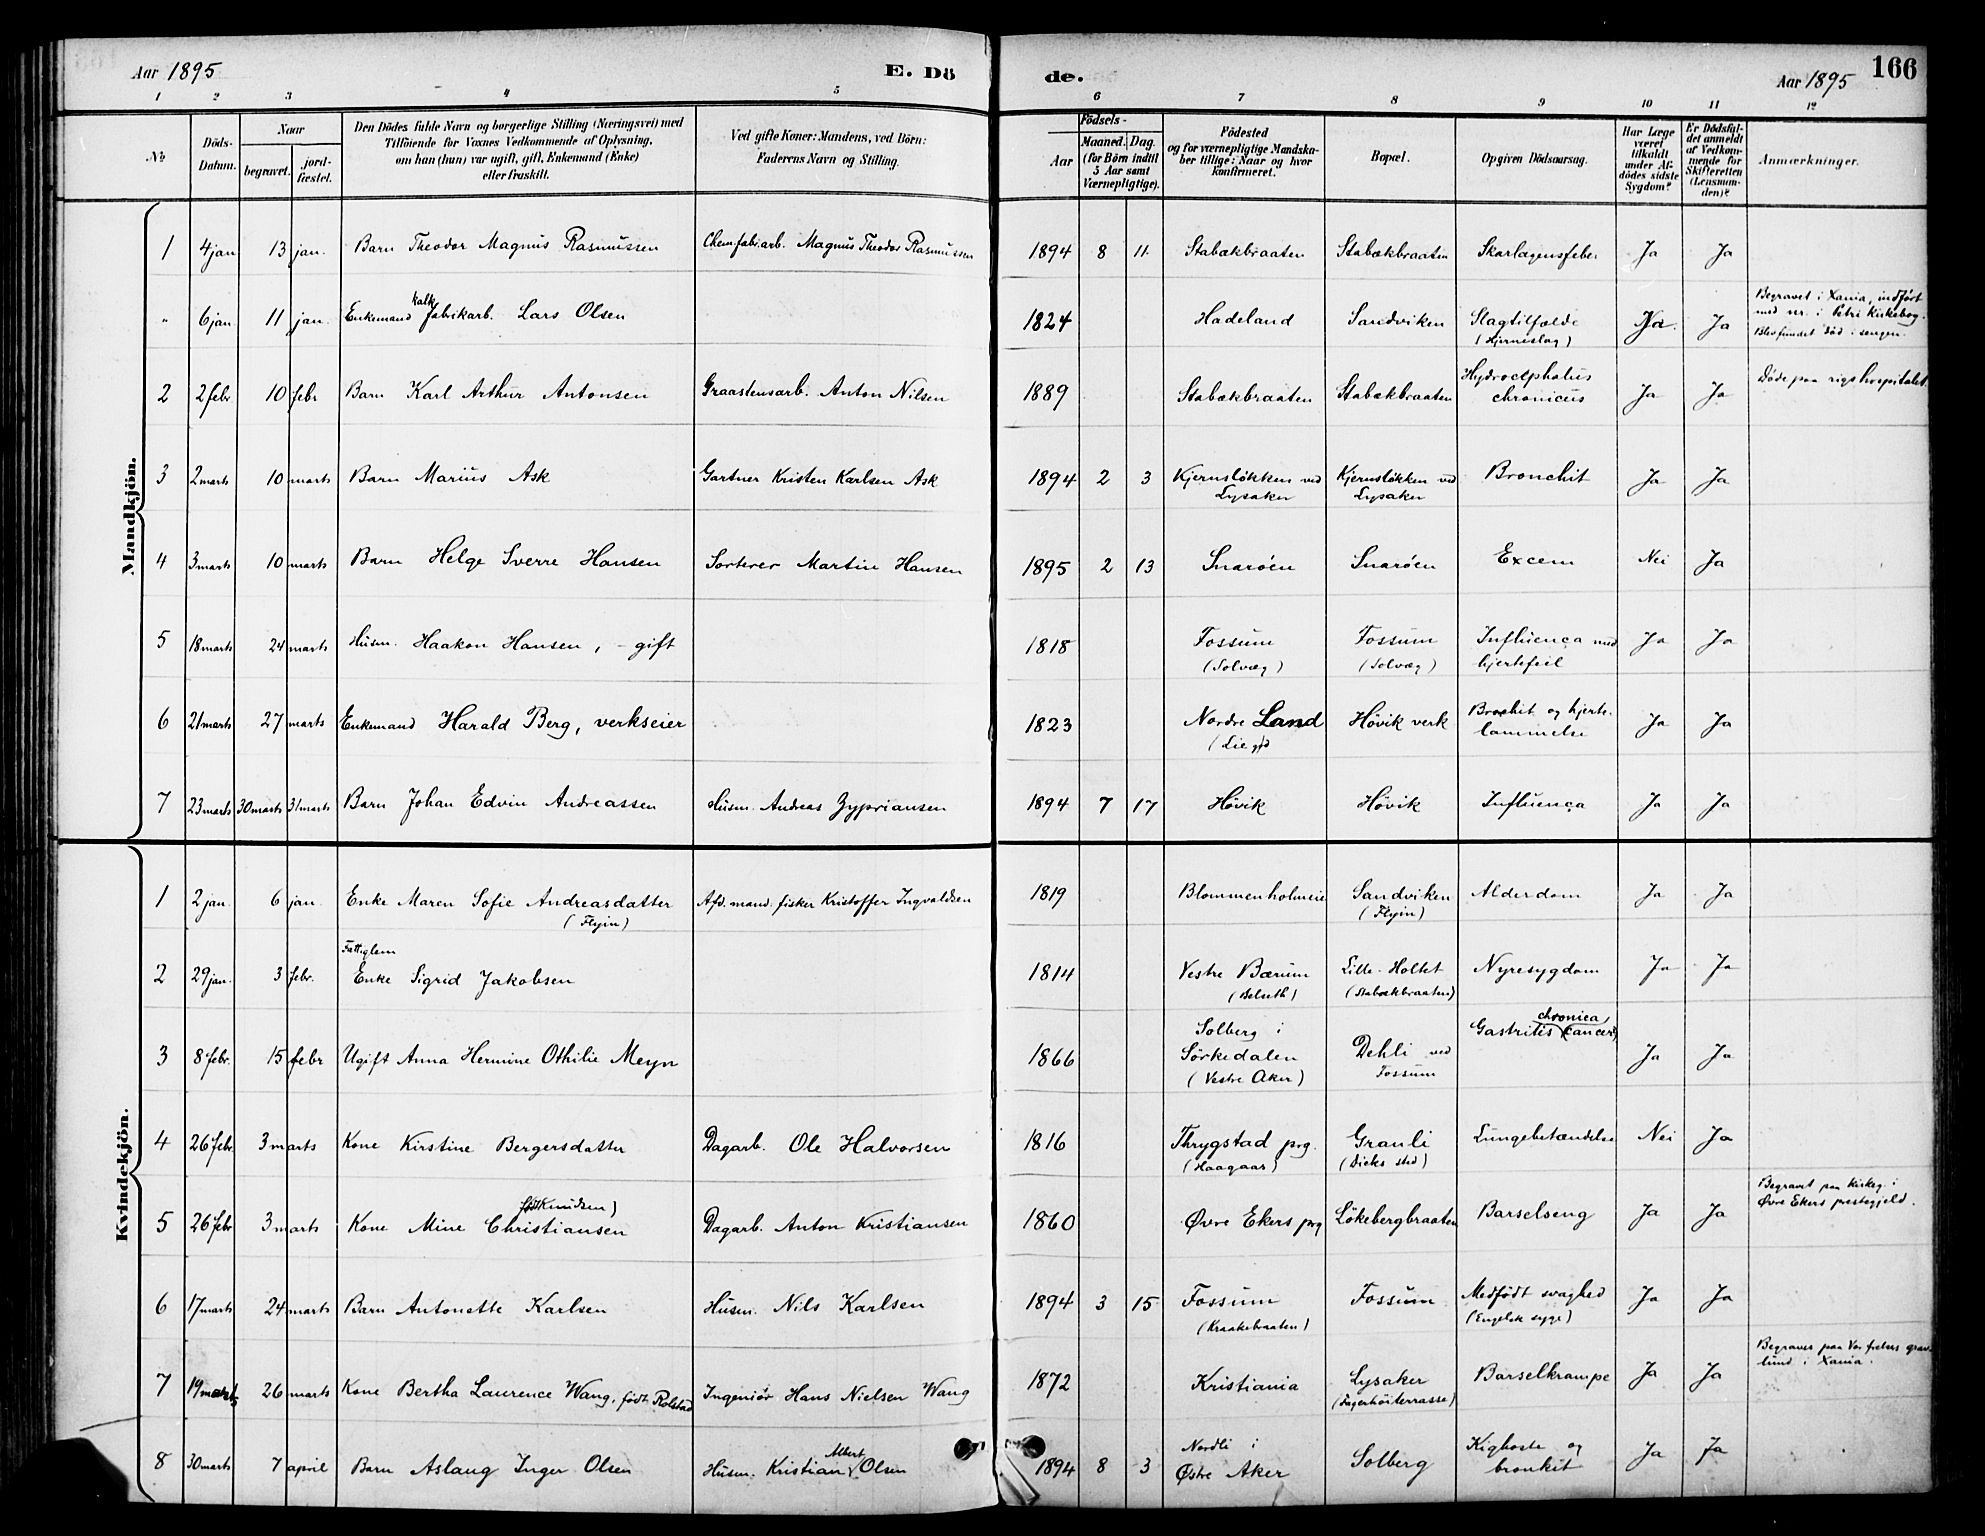 Aar 1895 E. Dö de. Aar 1895 166
1 2 3 4 5 6 7 8 9 10 11 12
№
Döds-
Datum.
Naar
begravet.
jord-
fæstet.
Den Dödes fulde Navn og borgerlige Stilling (Næringsvei) med
Tilföiende for Voxnes Vedkommende af Oplysning,
om han (hun) var ugift, gift, Enkemand (Enke)
eller fraskilt.
Ved gifte Koner: Mandens, ved Börn:
Faderens Navn og Stilling.
Födsels-
Aar
Maaned. Dag.
(for Börn indtil
5 Aar samt
Værnepligtige).
Födested
og for værnepligtige Mandska-
ber tillige: Naar og hvor
konfirmeret.
Bopæl.
Opgiven Dödsaarsag.
Har Læge
været
tilkaldt
under Af-
dödes sidste
Sygdom?
Er Dödsfal-
det anmeldt
af Vedkom-
mende for
Skifteretten
(Lensman-
den)?
Anmærkninger.
Mandkjön.
1 4 jan 13 jan. Barn Theodor Magnus Rasmussen Chem.fabr.arb. Magnus Theodor Rasmussen 1894 8 11. Stabækbraaten Stabækbraaten Skarlagensfeber Ja Ja
" 6 jan. 11 jan. Enkemand kalkfabrikarb. Lars Olsen 1824 Hadeland Sandviken Slagtilfælde Ja
(Hjerneslag)
Begravet i Xania, indført
med nr. i Petri kirkebog.
Blev fundet død i sengen.
2 2 febr 10 febr Barn Karl Arthur Antonsen Graastensarb. Anton Nilsen 1889 Stabækbraaten Stabækbraaten Hydrocephalus
chronicus Ja Ja Døde paa rigshospitalet.
3 2 marts 10 marts Barn Marius Ask Gartner Kristen Karlsen Ask 1894 2 3 Kjernsløkken ved
Lysaker
Kjernsløkken ved
Lysaker
Bronchit Ja Ja
4 3 marts 10 marts Barn Helge Sverre Hansen Sorterer Martin Hansen 1895 2 13 Snarøen Snarøen Excem Nei Ja
5 18 marts 24 marts Husm. Haakon Hansen, - gift 1818 Fossum
(Solvæg)
Fossum
(Solvæg)
Influença med
hjertefeil Ja Ja
6 21 marts 27 marts Enkemand Harald Berg, verkseier 1823 Nordre Land
Høvik verk
Bronkit og hjerte-
lammelse Ja Ja
7 23 marts 30 marts 31 marts Barn Johan Edvin Andreassen Husm. Andreas Zypriansen 1894 7 17 Høvik Høvik Influença Ja Ja
Kvindekjön.
1 2 jan. 6 jan. Enke Maren Sofie Andreasdatter
(Flyin)
Afd. mand: fisker Kristoffer Ingvaldsen 1819 Blommenholmeie Sandviken
(Flyin)
Alderdom Ja Ja
2 29 jan. 3 febr. Fattiglem
Enke Sigrid Jakobsen 1814 Vestre Bærum
(Belseth)
Lille-Holtet
(Stabækbraaten)
Nyresygdom Ja Ja
3 8 febr. 15 febr Ugift Anna Hermine Othilie Meyn 1866 Solberg i
Sørkedalen
(Vestre Aker)
Dehli ved
Fossum
Gastritis chronica, (cancer) Ja Ja
4 26 febr. 3 marts Kone Kirstine Bergersdatter Dagarb. Ole Halvorsen 1816 Thrygstad prg.
(Haagaar)
Granli
(Dicks sted)
Lungebetændelse Nei Ja
5 26 febr 3 marts Kone Mine Christiansen
(født Knudsen)
Dagarb. Anton Kristiansen 1860 Øvre Ekers prg Løkebergbraaten Barselseng Ja Ja
Begravet paa kirkeg. i
Øvre Ekers prestegjeld.
6 17 marts 24 marts Barn Antonette Karlsen Husm. Nils Karlsen 1894 3 15 Fossum
(Kraakebraaten)
Fossum
Medfødt svaghed
(Engelsk syge) Ja Ja
7 19 marts 26 marts Kone Bertha Laurence Wang, født Rolstad Ingeniør Hans Nielsen Wang 1872 Kristiania Lysaker
(Fagerhøiterrasse)
Barselkrampe Ja Ja
Begraves paa Vor frelsers grav-
lund i Xania.
8 30 marts 7 april Barn Aslaug Inger Olsen Husm. Kristian Albert Olsen 1894 8 3 Nordli i
Østre Aker
Solberg
Kighoste og
bronkit Ja Ja